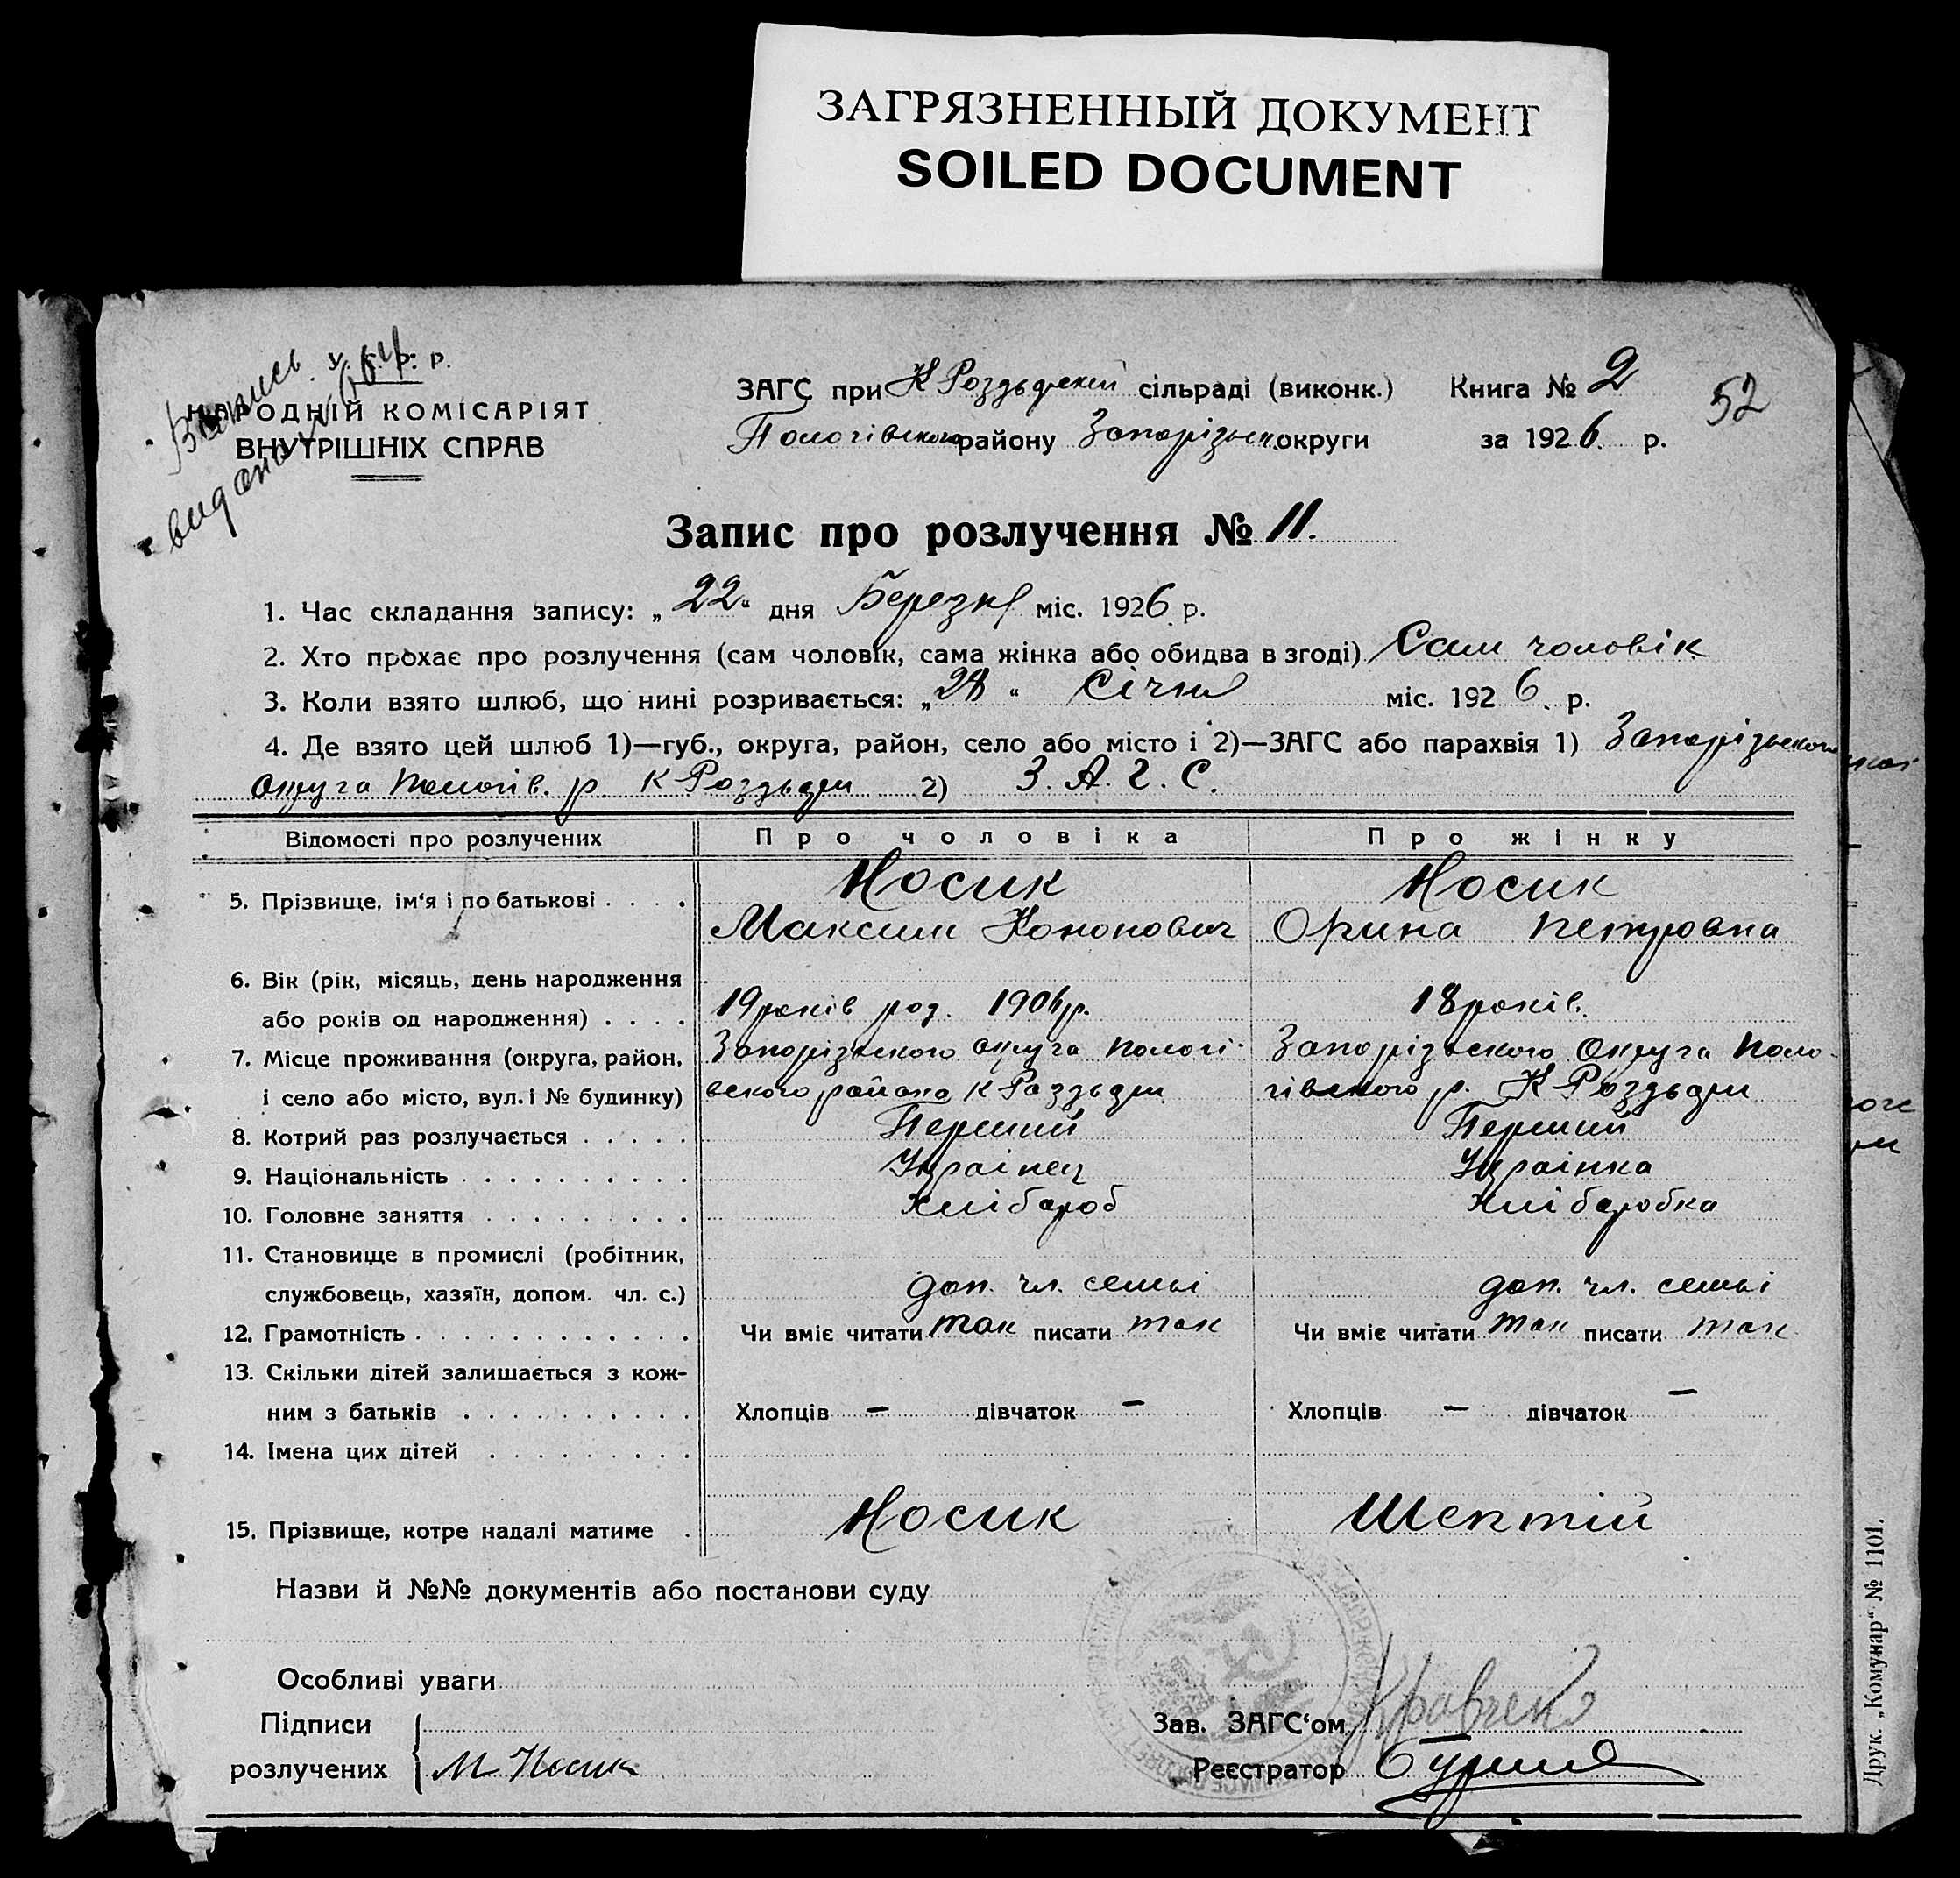 ЗАГРЯЗНЕННЫЙ ДОКУМЕНТ
SOILED DOCUMENT
У. С. Р. Р.
НАРОДНІЙ КОМІСАРІЯТ
ВНУТРІШНІХ СПРАВ
ЗАГС при К Роздьорскій сільраді (виконк.) Книга № 2
52
Пологівського району Запорізьк. округи за 1926 р.
Запис про розлучення № 11.
1. Час складання запису: „22“ дня Березня міс. 1926 р.
2. Хто прохає про розлучення (сам чоловік, сама жінка або обидва в згоді) Сам чоловік
3. Коли взято шлюб, що нині розривається: „28“ Січня міс. 1926 р.
4. Де взято цей шлюб 1)—губ., округа, район, село або місто і 2)—ЗАГС або парахвія 1) Запорізького
округа Пологів. р. К Роздьори 2) З. А. Г. С.
Відомості про розлучених Про чоловіка Про жінку
5. Прізвище, ім'я і по батькові . . . . Носик Носик
Максим Кононович Орина Петровна
6. Вік (рік, місяць, день народження
або років од народження) . . . . 19 років род. р. 18 років.
7. Місце проживання (округа, район, Запорізького округа Пологі- Запорізького Округа Поло-
і село або місто, вул. і № будинку) вского района К Роздьори гівского р. К Роздьори
8. Котрий раз розлучається . . . . . Перший Перший
9. Національність . . . . . . . . . . Українец Українка
10. Головне заняття . . . . . . . . . Хлібороб Хліборобка
11. Становище в промислі (робітник,
службовець, хазяїн, допом. чл. с.) доп. чл. семьі доп. чл. семьі
12. Грамотність . . . . . . . . . . . . Чи вміє читати так писати так Чи вміє читати так писати так
13. Скільки дітей залишається з кож-
ним з батьків . . . . . . . . . . Хлопців — дівчаток — Хлопців — дівчаток —
14. Імена цих дітей . . . . . . . . .
15. Прізвище, котре надалі матиме . Носик Шептій
Назви й №№ документів або постанови суду
Особливі уваги
Підписи
розлучених М Носик
Зав. ЗАГС‘ом Кравченко
Реєстратор
Друк. „Комунар“ № 1101.